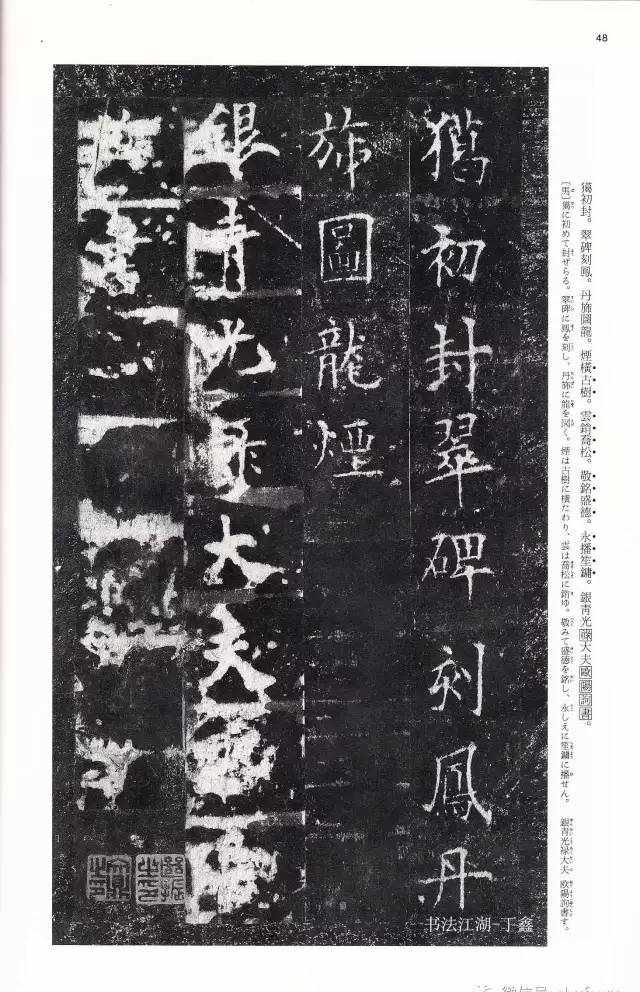 48
獦初封。翠碑刻鳳。丹旆圖龍。煙橫古樹。雲銷喬松。敬銘盛德。永播笙鏞。銀青光祿大夫歐陽詢書。
[男]獦に初めて封ぜらる。翠碑に鳳を刻し、丹旆に龍を図く。煙は古樹に橫たわり、雲は喬松に銷ゆ。敬みて盛徳を銘し、永しえに笙鏞に播せん。 銀青光禄大夫 歐陽詢書す。
獦初封翠碑刻鳳丹
旆圖龍煙
銀青光祿大夫
书法江湖-丁鑫